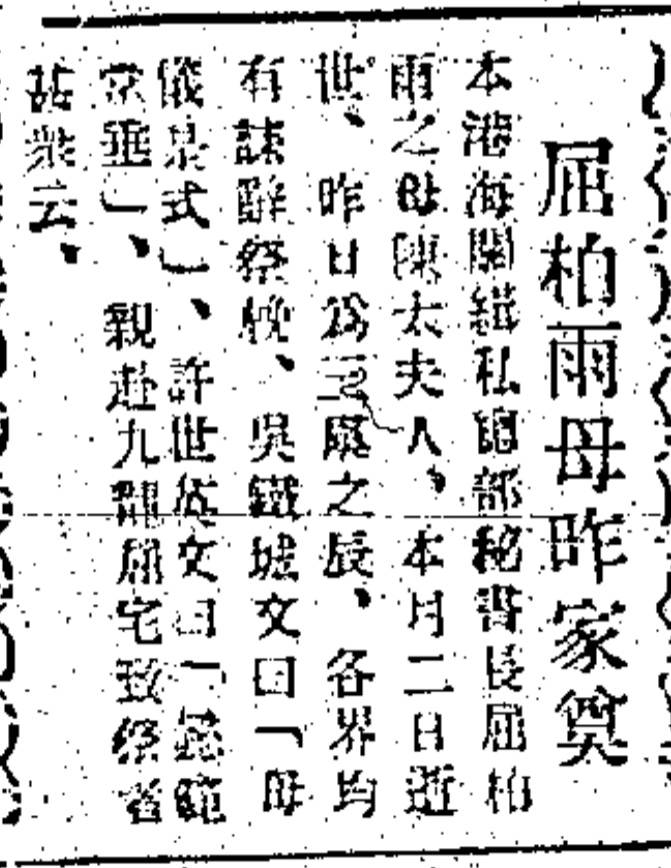 屈柏雨母昨家奠
本港海關緝私總部秘書長屈柏
雨之母陳太夫人、本月二日逝
世、昨日爲三虞之辰、各界均
有誄辭祭輓、吳鐵城文曰「母
儀式」、許世英文曰「懿範
常垂」、親赴九龍屈宅致祭者
甚衆云、